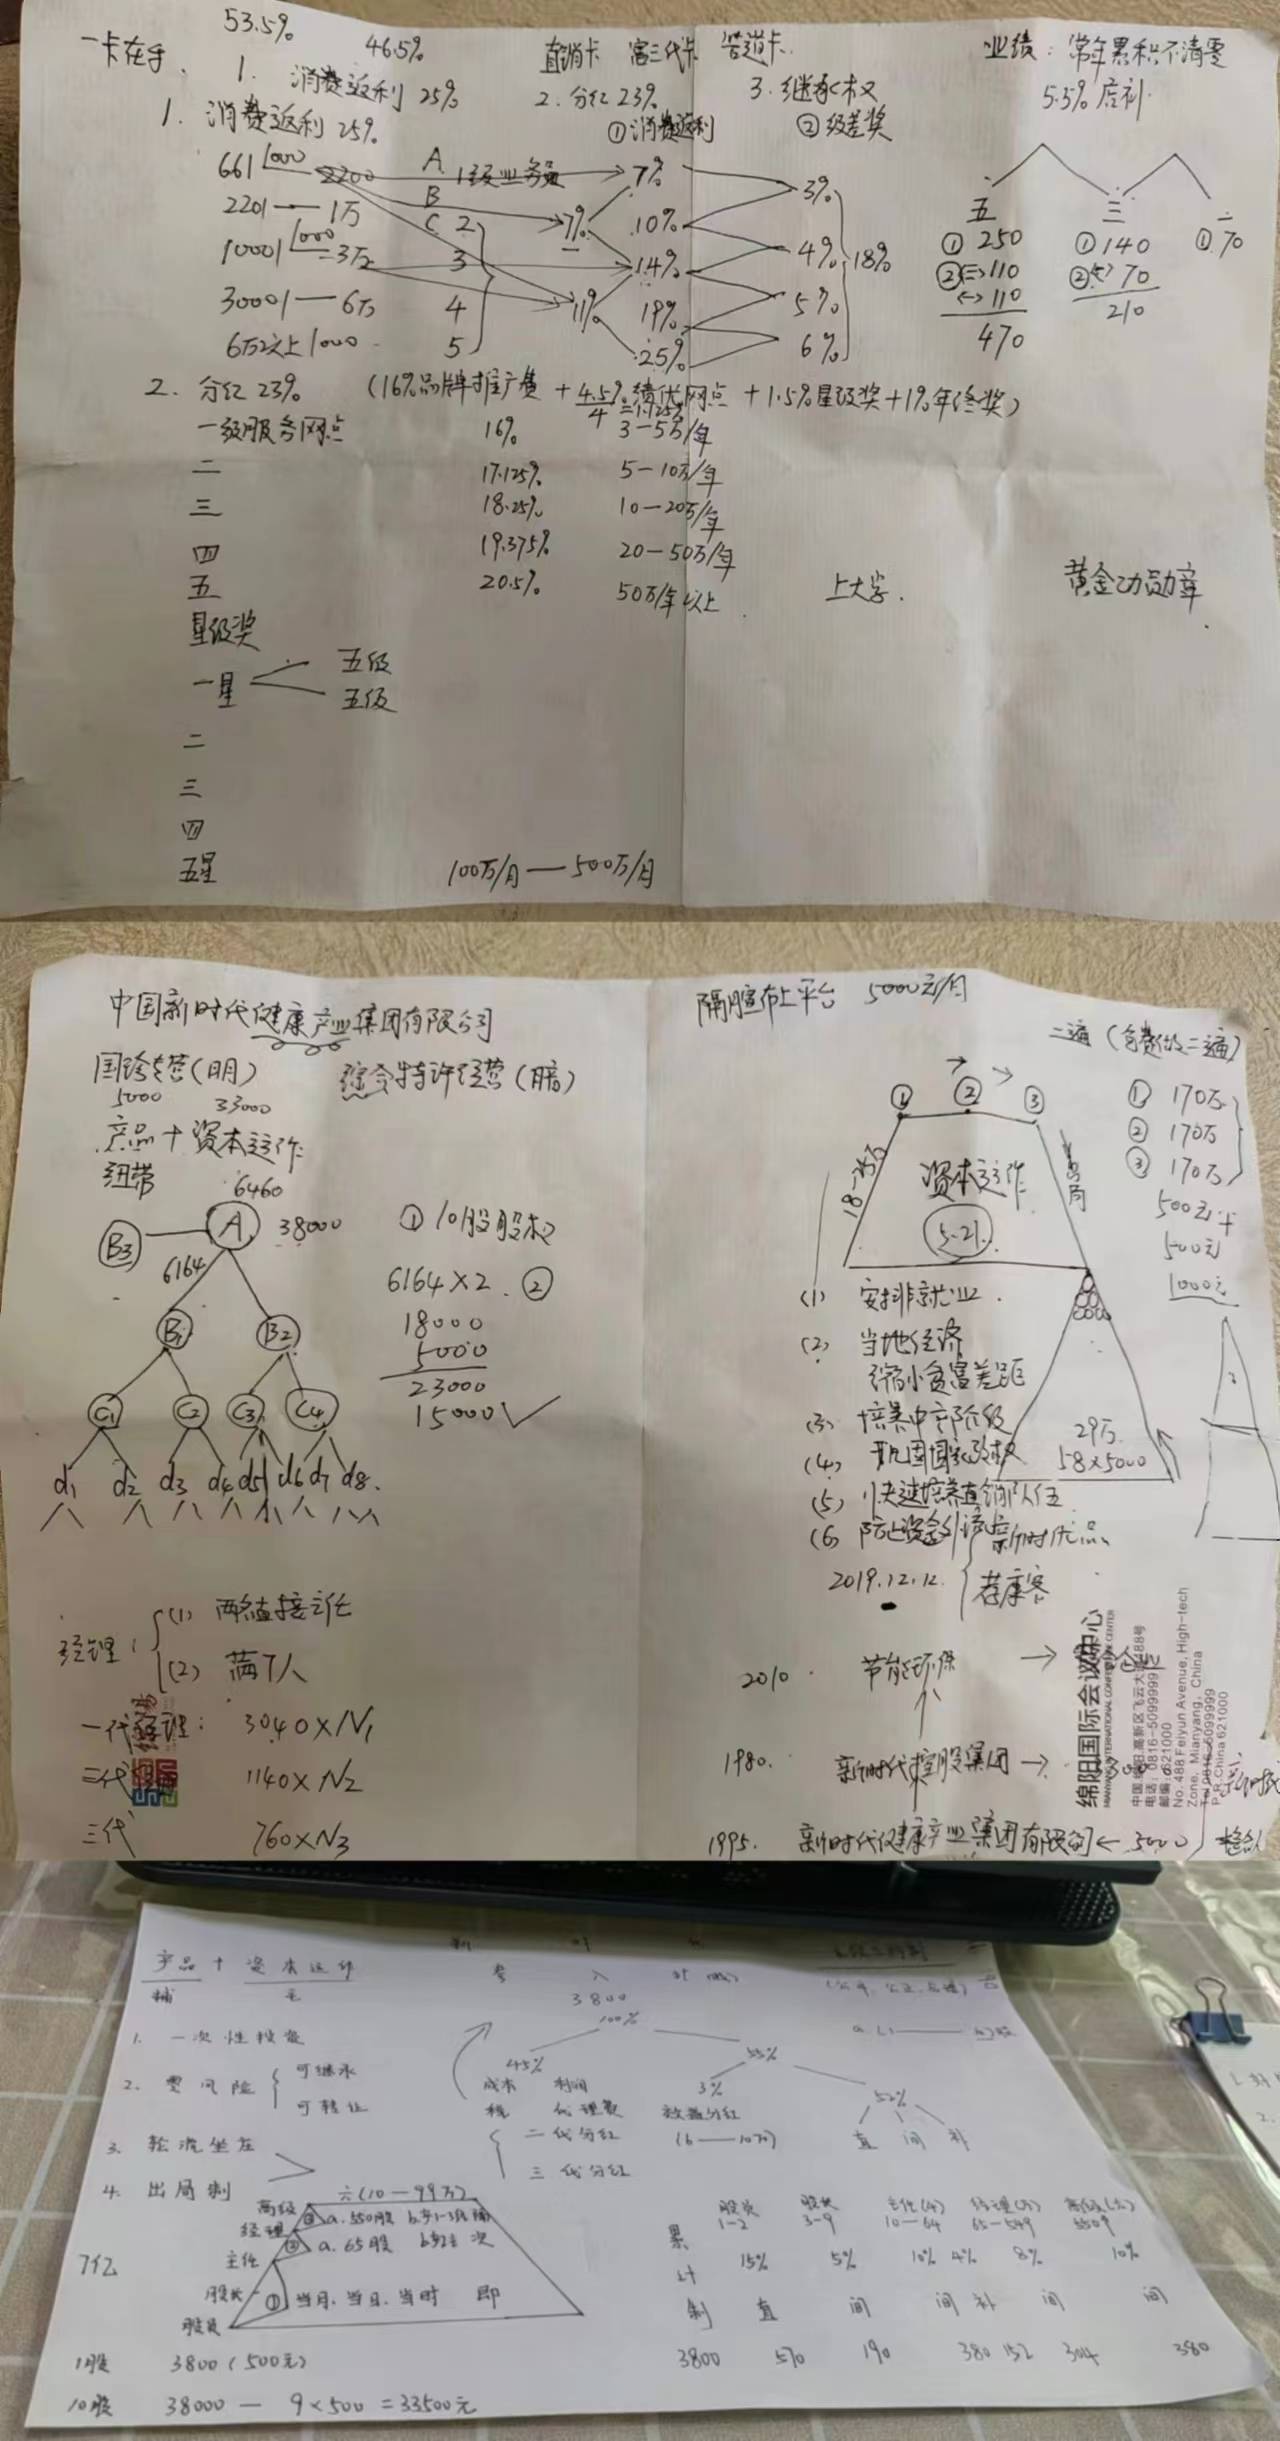 53.5%
46.5%
一卡在手
直销卡 富三代卡
业绩：常年累积不清零
1. 消费返利 25%
2. 分红 23%
3. 继承权
5.5%店补
1. 消费返利 25%
①消费返利
②级差奖
661 1000 2200
A 1级业务员
7%
3%
2201 — 1万
B
7%
10%
C 2
10001 1000 3万
3
14%
4%
18%
30001 — 6万
4
11%
19%
5%
6万以上 1000
5
25%
6%
五
三
二
①250
①140
①70
②<二>110
②<> 70
<->110
210
470
2. 分红 23% (16%品牌推广费 + 4.5%绩优网点 + 1.5%星级奖 + 1%年终奖)
4 = 1.125%
一级服务网点 16% 3—5万/年
二 17.125% 5—10万/年
三 18.25% 10—20万/年
四 19.375% 20—50万/年
五 20.5% 50万/年以上
上大学.
黄金功勋章
星级奖
一星
五级
五级
二
三
四
五星 100万/月 — 500万/月
中国新时代健康产业集团有限公司
国珍专营(明) 综合特许经营(暗)
5000 33000
产品 + 资本运作
纽带
6460
B3 A 38000
6164
B1 B2
C1 C2 C3 C4
d1 d2 d3 d4 d5 d6 d7 d8
① 10股股权
6164×2 ②
18000
5000
23000
15000✓
经理：
(1) 两名直接主任
(2) 满7人
一代经理： 3040×N1
二代 1140×N2
三代 760×N3
5000元/月
二遍 (免费做二遍)
① ② ③
① 170万
② 170万
③ 170万
18-25万
资本运作
5-21
出局
500元
500元
1000元
(1) 安排就业.
(2) 当地经济
缩小贫富差距
(3) 培养中产阶级
(4) 巩固国家政权
(5) 快速培养直销队伍
(6) 防止资金外流
29万
58×5000
新时代优品
2019.12.12.
2010. 节能环保
1980. 新时代控股集团
1995. 新时代健康产业集团有限公司 ← 5000
绵阳国际会议中心
MIANYANG INTERNATIONAL CONFERENCE CENTER
中国·绵阳.高新区飞云大道488号
电话：0816-5099999
邮编：621000
No. 488 Feiyun Avenue, High-tech
Zone, Mianyang, China
Tel 0816-5099999
P.R.China 621000
产品 + 资本运作
辅 主
3800
100%
1. 一次性投资
45%
55%
成本 利润
3%
52%
2. 零风险
可继承
可转让
税 代理费
效益分红
二代分红
直 间 补
3. 轮流坐庄
三代分红
4. 出局制
六(10—99万)
高级
经理
主任
股长
股员
a. 550股
a. 65股
① 当月、当日、当时 即
7亿
股员 股长 主任(4) 经理(5) 高级(六)
1-2 3-9 10—64 65—549
累计制
15% 5% 10% 4% 8% 10%
直 间 间 补 间 间
3800 570 190 380 152 304 380
1股 3800 (500元)
10股 38000 — 9×500 = 33500元